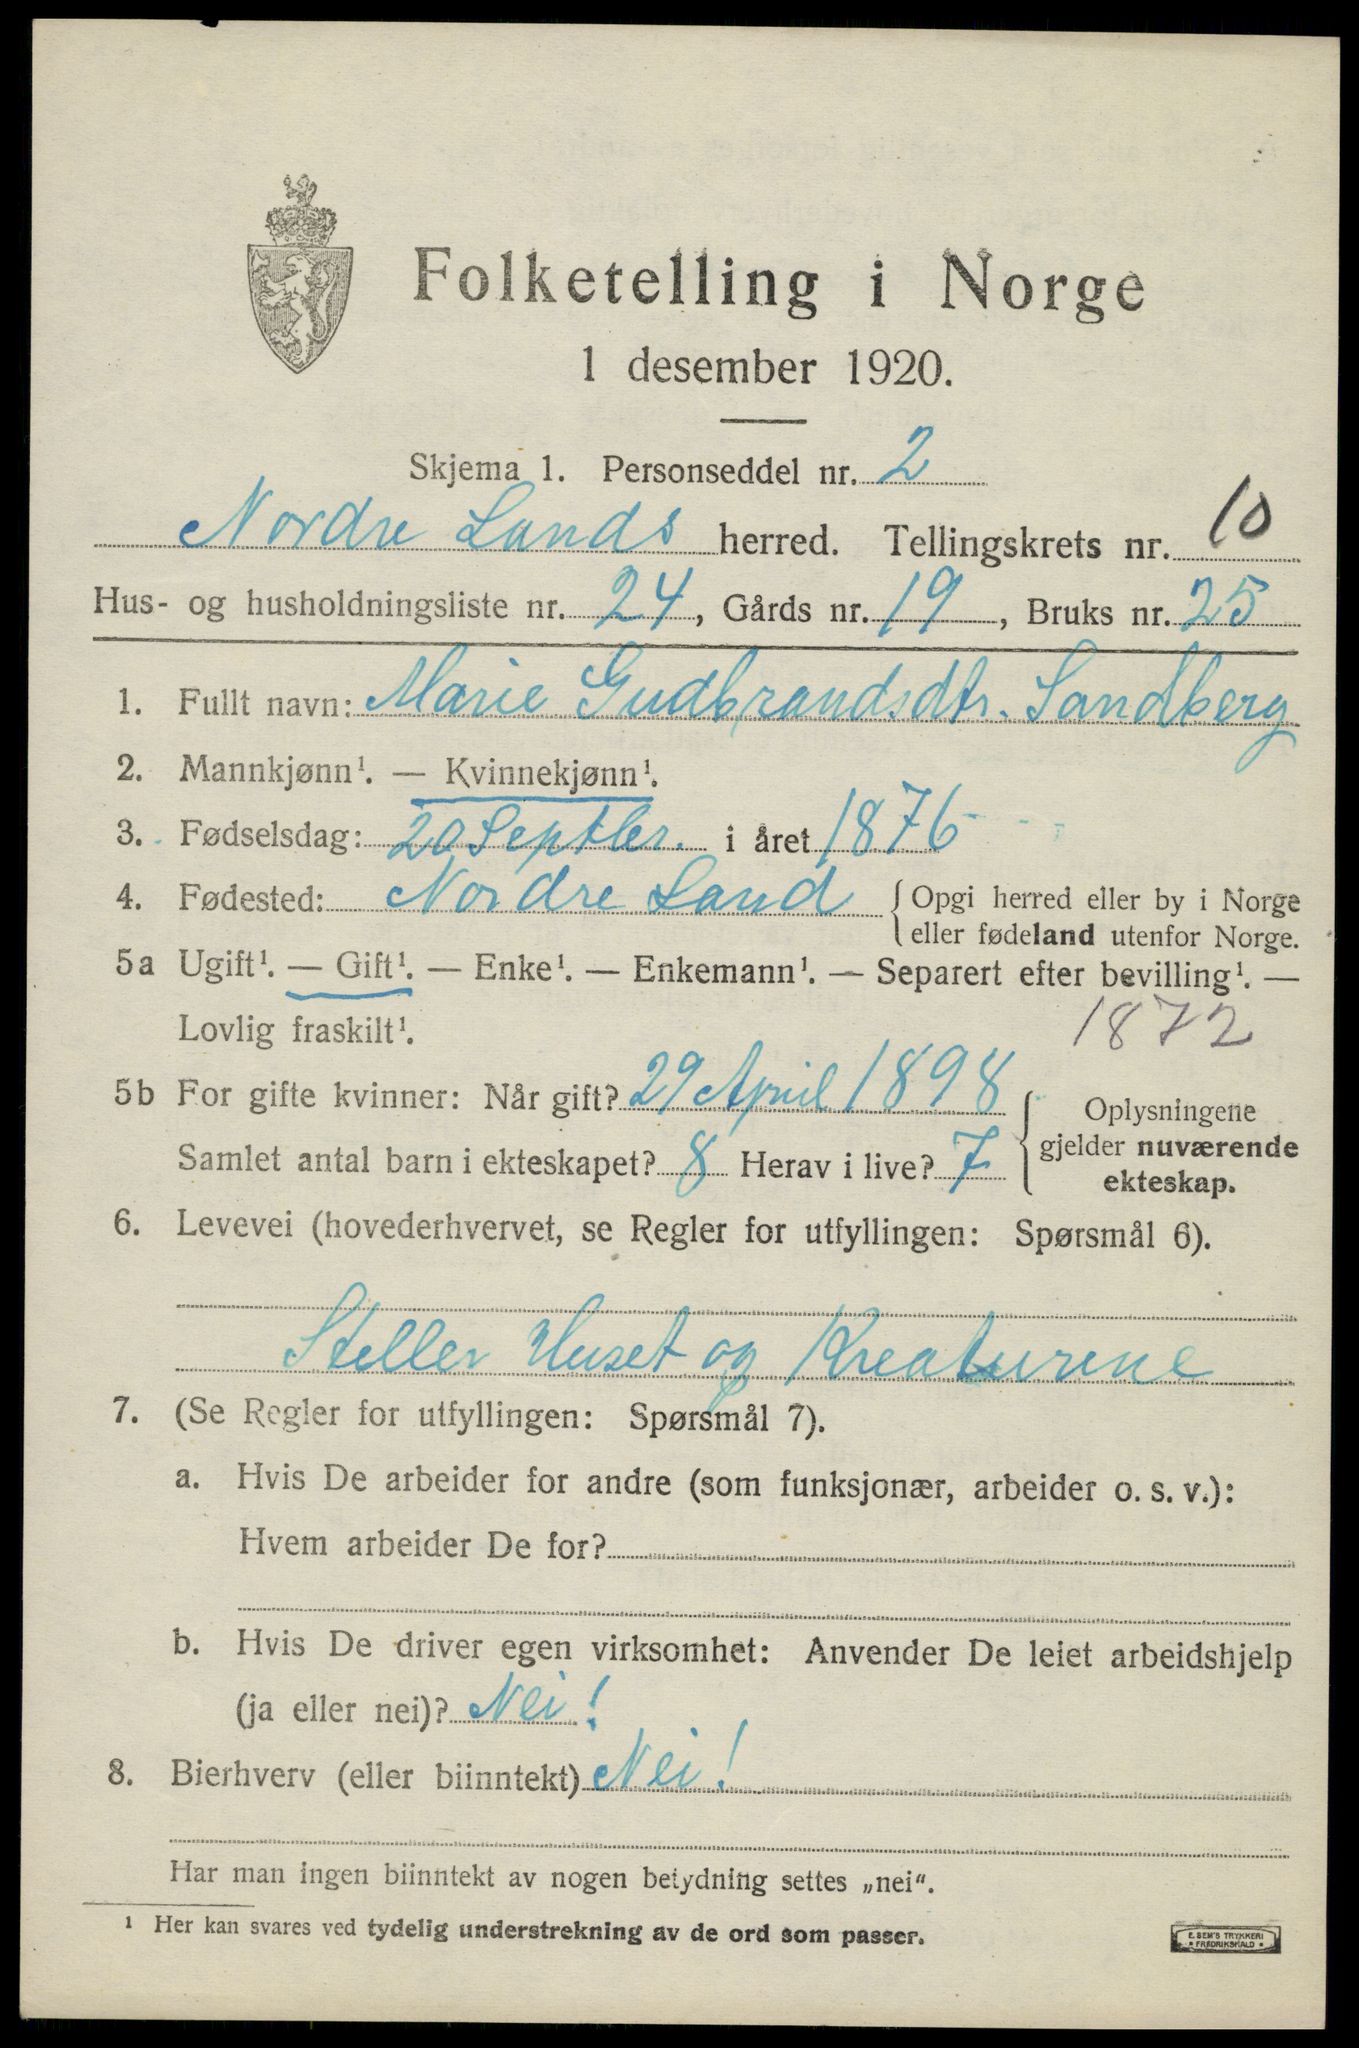 Folketelling i Norge
1 desember 1920.
Skjema 1. Personseddel nr. 2
Nordre Lands herred. Tellingskrets nr. 10
Hus- og husholdningsliste nr. 24, Gårds nr. 19, Bruks nr. 25
1. Fullt navn: Marie Gudbrandsdtr. Sandberg
2. Mannkjønn¹. — Kvinnekjønn¹.
3. Fødselsdag: 20 Septber. i året 1876
4. Fødested: Nordre Land { Opgi herred eller by i Norge
eller fødeland utenfor Norge.
5a Ugift¹. — Gift¹. — Enke¹. — Enkemann¹. — Separert efter bevilling¹. —
Lovlig fraskilt¹. 1872
5b For gifte kvinner: Når gift? 29 April 1898 { Oplysningene
gjelder nuværende
ekteskap.
Samlet antal barn i ekteskapet? 8 Herav i live? 7
6. Levevei (hovederhvervet, se Regler for utfyllingen: Spørsmål 6).
Steller Huset og Kreaturene
7. (Se Regler for utfyllingen: Spørsmål 7).
a. Hvis De arbeider for andre (som funksjonær, arbeider o. s. v.):
Hvem arbeider De for?
b. Hvis De driver egen virksomhet: Anvender De leiet arbeidshjelp
(ja eller nei)? Nei!
8. Bierhverv (eller biinntekt) Nei!
Har man ingen biinntekt av nogen betydning settes „nei“.
¹ Her kan svares ved tydelig understrekning av de ord som passer.
E. SEM'S TRYKKERI
FREDRIKSHALD